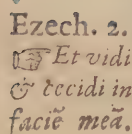 Ezech. 2.
☞ Et vidi
& cecidi in
faciẽ meã.